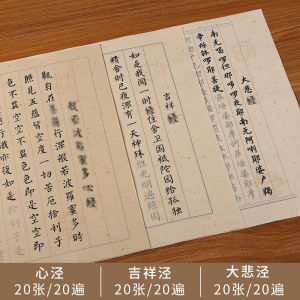 大悲
南无喝啰怛那哆啰夜耶南无阿唎耶婆卢羯
帝烁钵啰耶菩提
吉祥
如是我闻一时住舍卫国祇陀园给孤独
精舍时已夜深有一天神殊胜光明遍照园
般若波羅蜜多心
觀自在行深般若波羅蜜多時
照見五蘊皆空度一切苦厄舍利子
色不異空空不異色色即是空空即
行識亦復如是舍利子
心泾
20张/20遍
吉祥泾
20张/20遍
大悲泾
20张/20遍